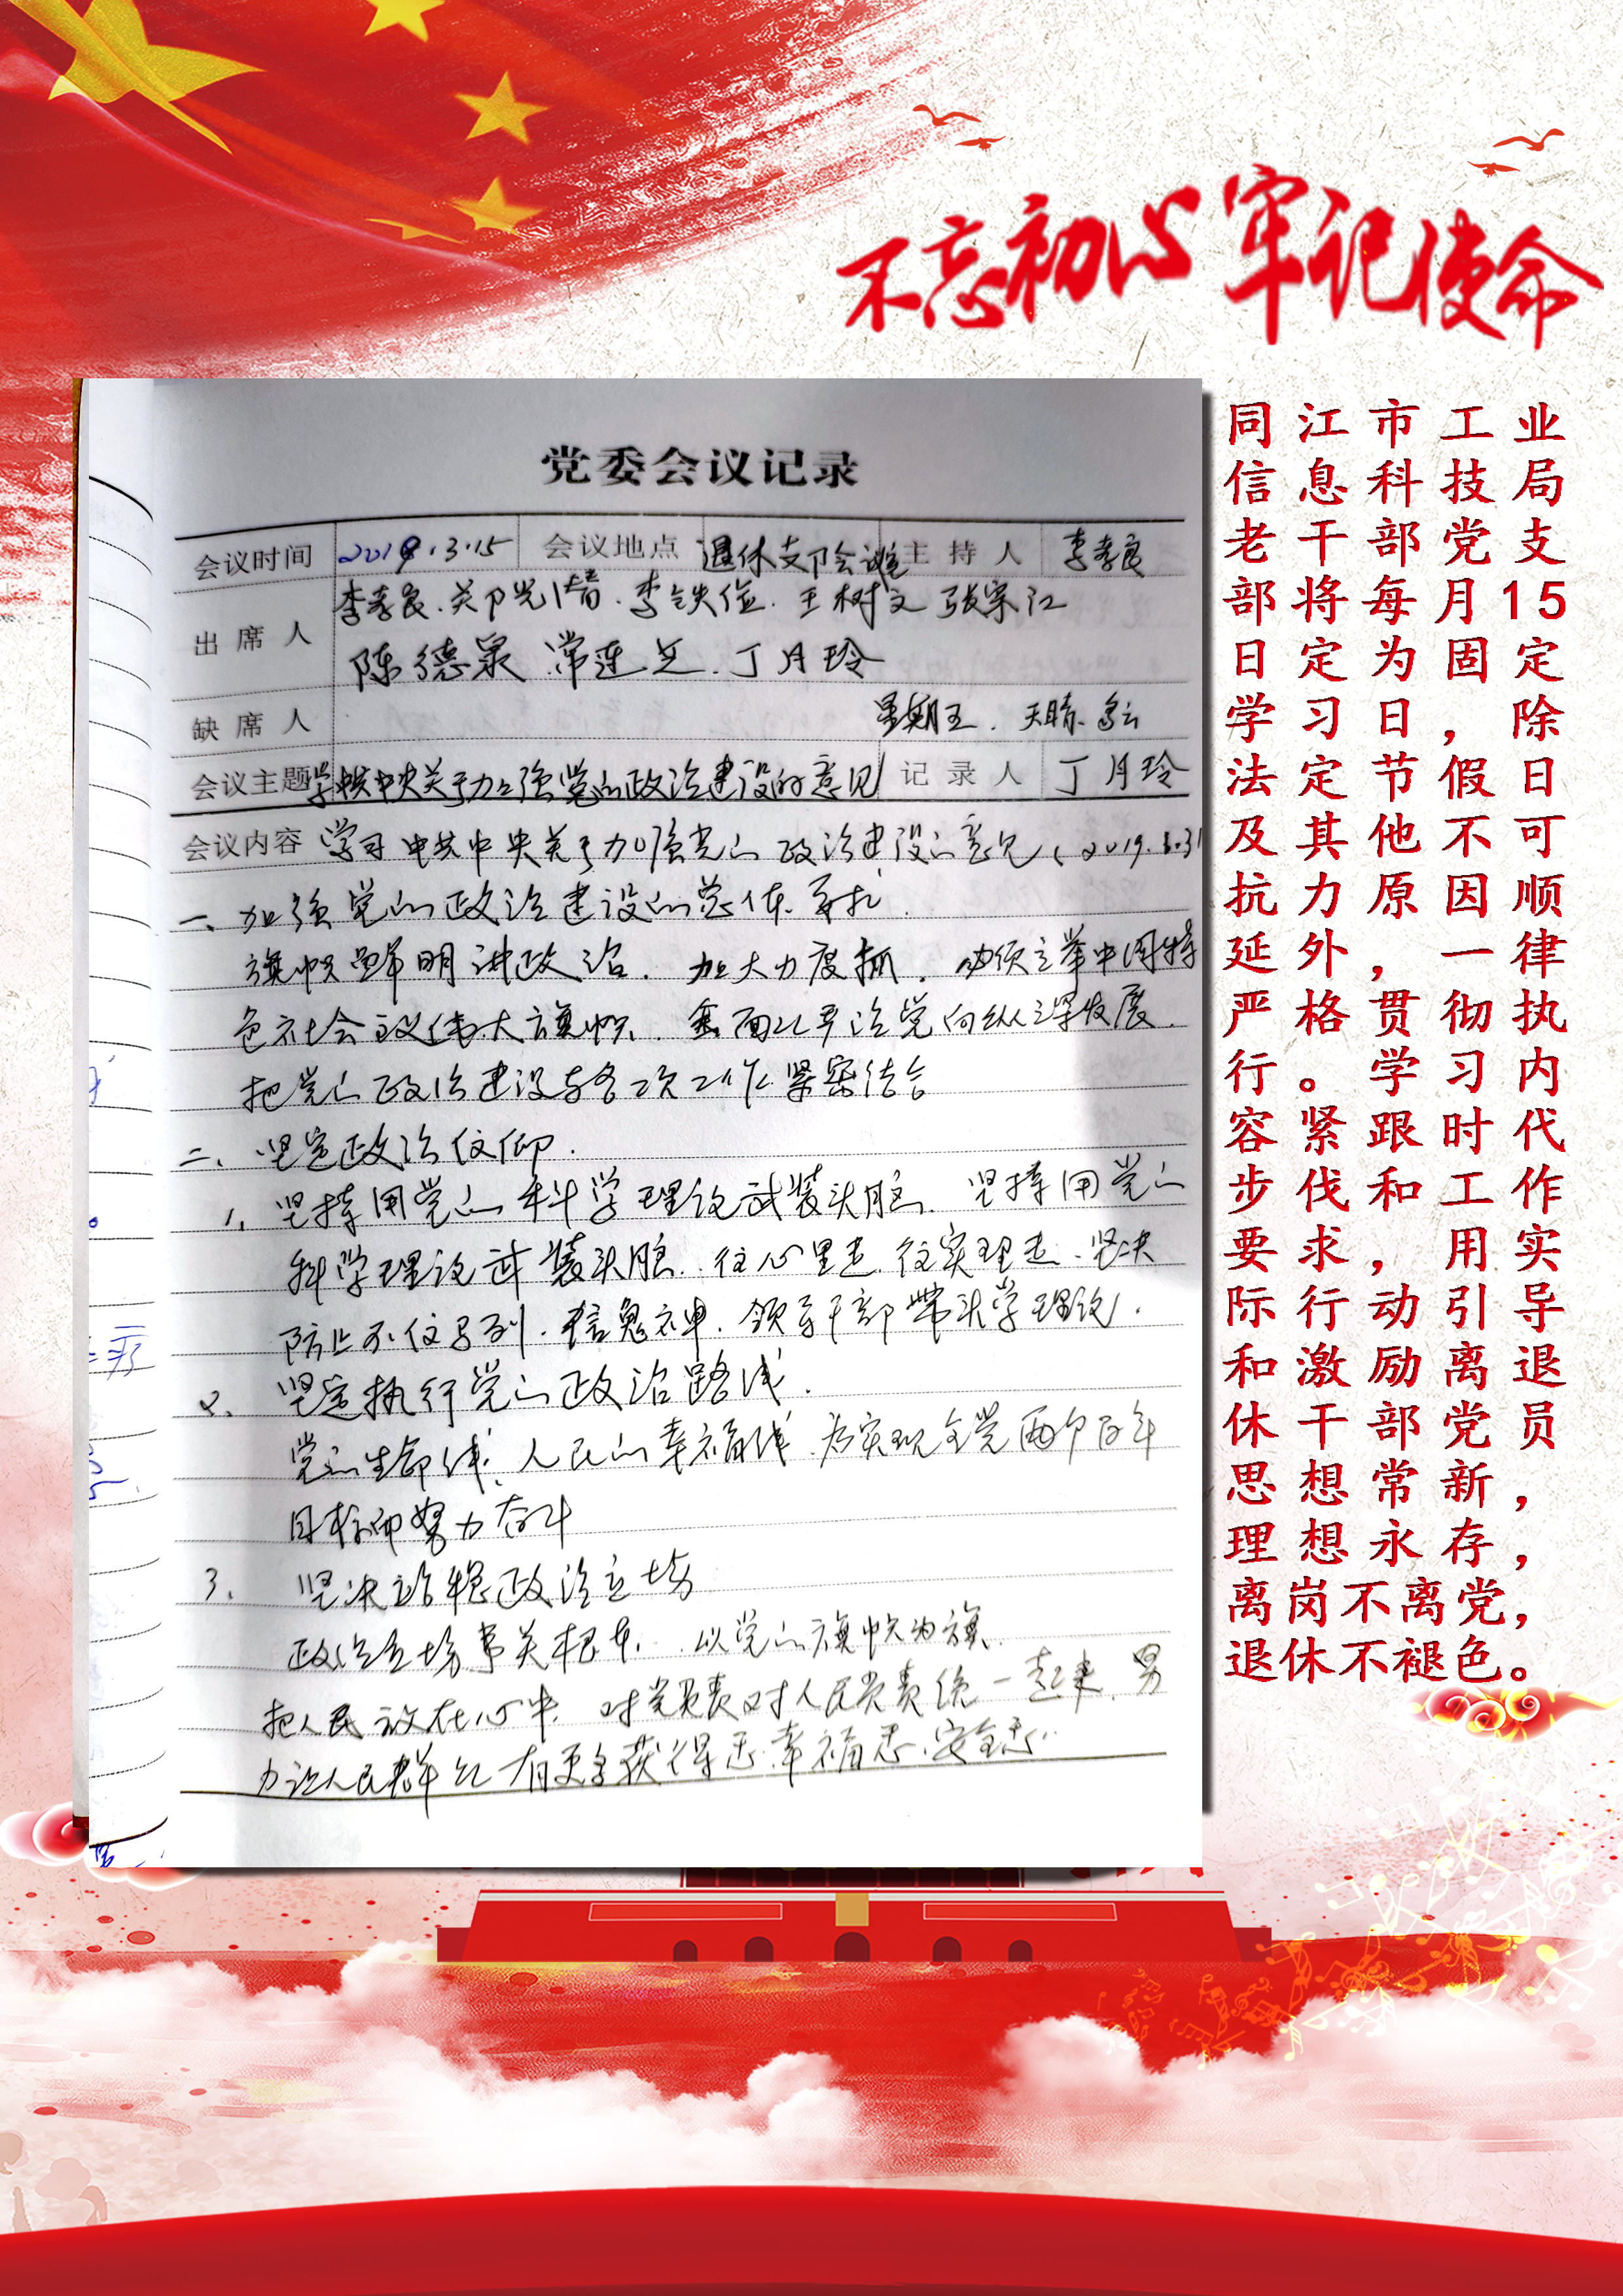 不忘初心 牢记使命
党委会议记录
会议时间 2019.3.15 会议地点 退休支部会议室 主持人 李孝良
出席人 李孝良、关 李铁俭、王树文 张宗江
陈德泉 常连芝、丁月玲
缺席人 星期五、天晴、多云
会议主题 学中共中央关于加强党的政治建设的意见 记录人 丁月玲
会议内容 学习中共中央关于加强党的政治建设的意见(2019.1.31
一、加强党的政治建设的总体要求、
旗帜鲜明讲政治、加大力度抓、必须高举中国特
色社会主义伟大旗帜、全面从严治党向纵深发展、
把党的政治建设与各项工作紧密结合
二、坚定政治信仰、
1、坚持用党的科学理论武装头脑、坚持用党的
科学理论武装头脑、往心里走、往实里走、坚决
防止不信马列、信鬼神、领导干部带头学理论、
2、坚定执行党的政治路线、
党的生命线、人民的幸福线、为实现全党两个百年
目标而努力奋斗
3、坚决站稳政治立场
政治立场事关根本、以党的旗帜为旗、
把人民放在心中、对党负责对人民负责统一起来、努
力让人民群众有更多获得感、幸福感、安全感、
同江市工业
信息科技局
老干部党支
部将每月15
日定为固定
学习日，除
法定节假日
及其他不可
抗力原因顺
延外，一律
严格贯彻执
行。学习内
容紧跟时代
步伐和工作
要求，用实
际行动引导
和激励离退
休干部党员
思想常新，
理想永存，
离岗不离党，
退休不褪色。